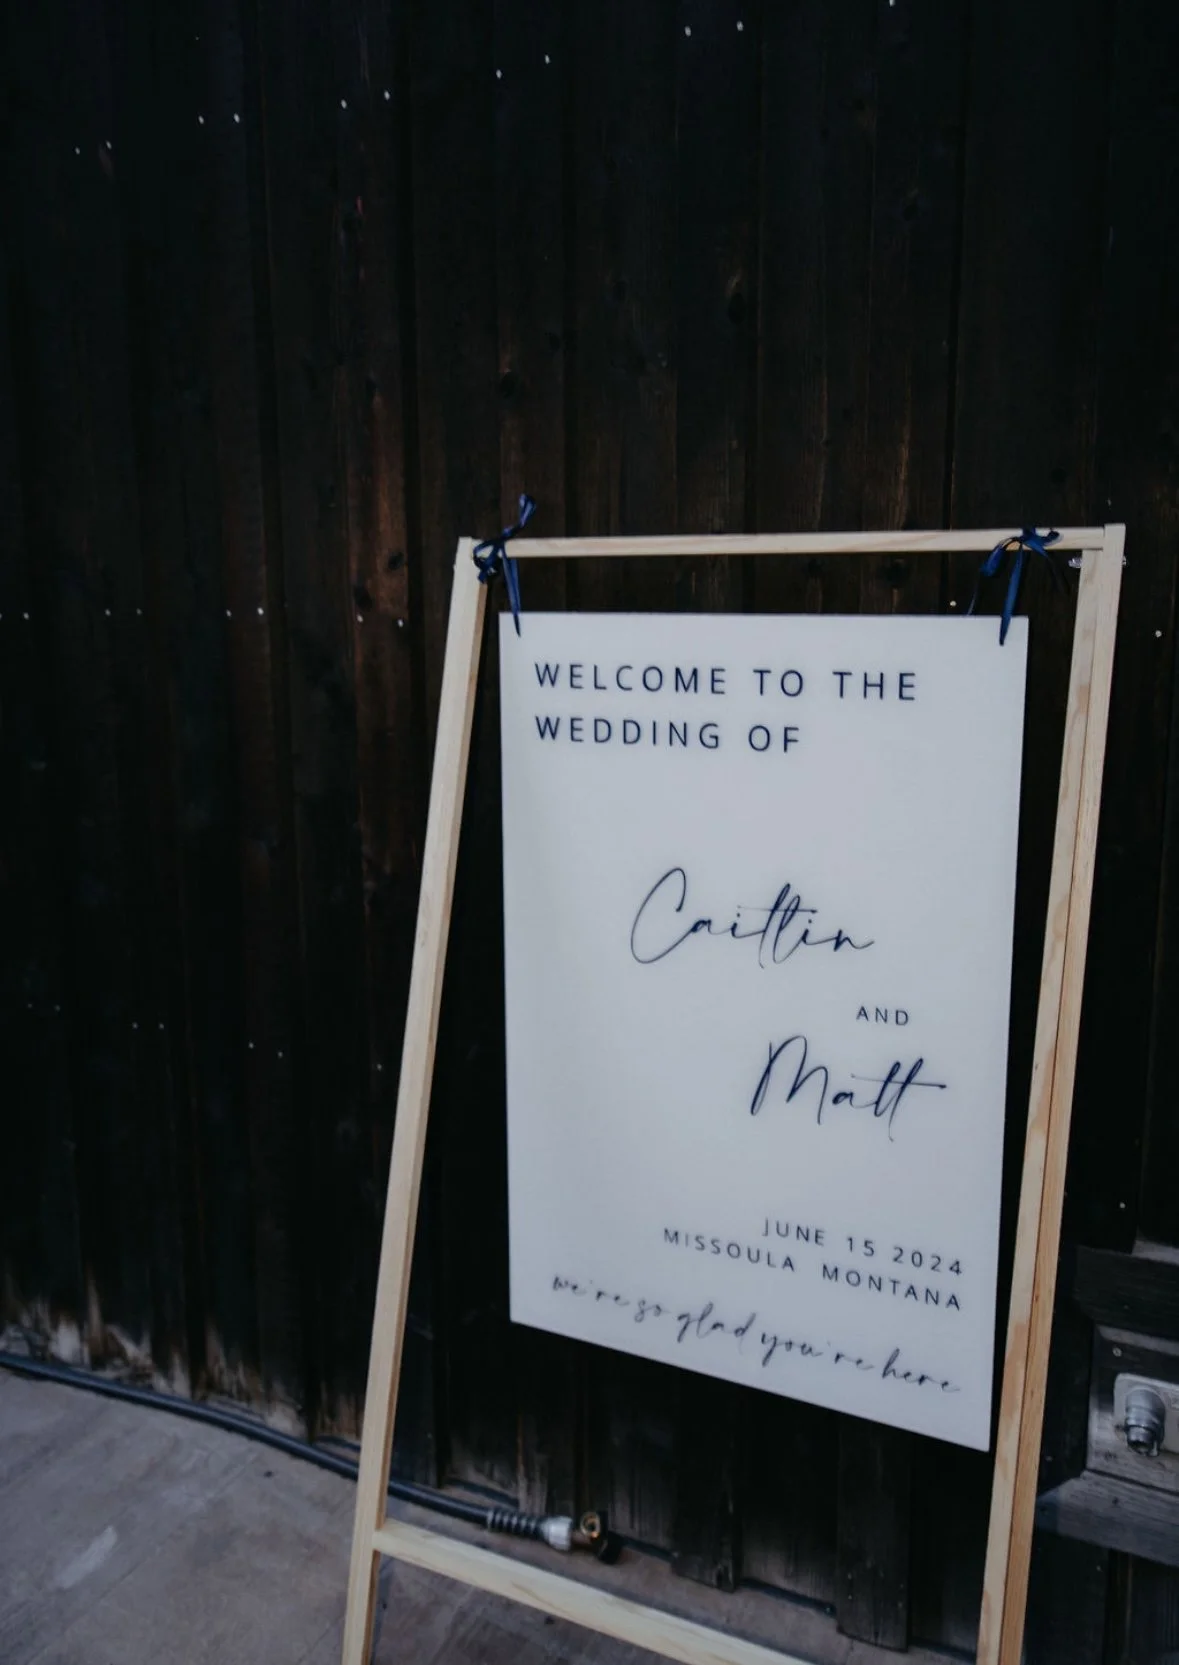 WELCOME TO THE
WEDDING OF
Caitlin
AND
Matt
JUNE 15 2024
MISSOULA MONTANA
we're so glad you're here